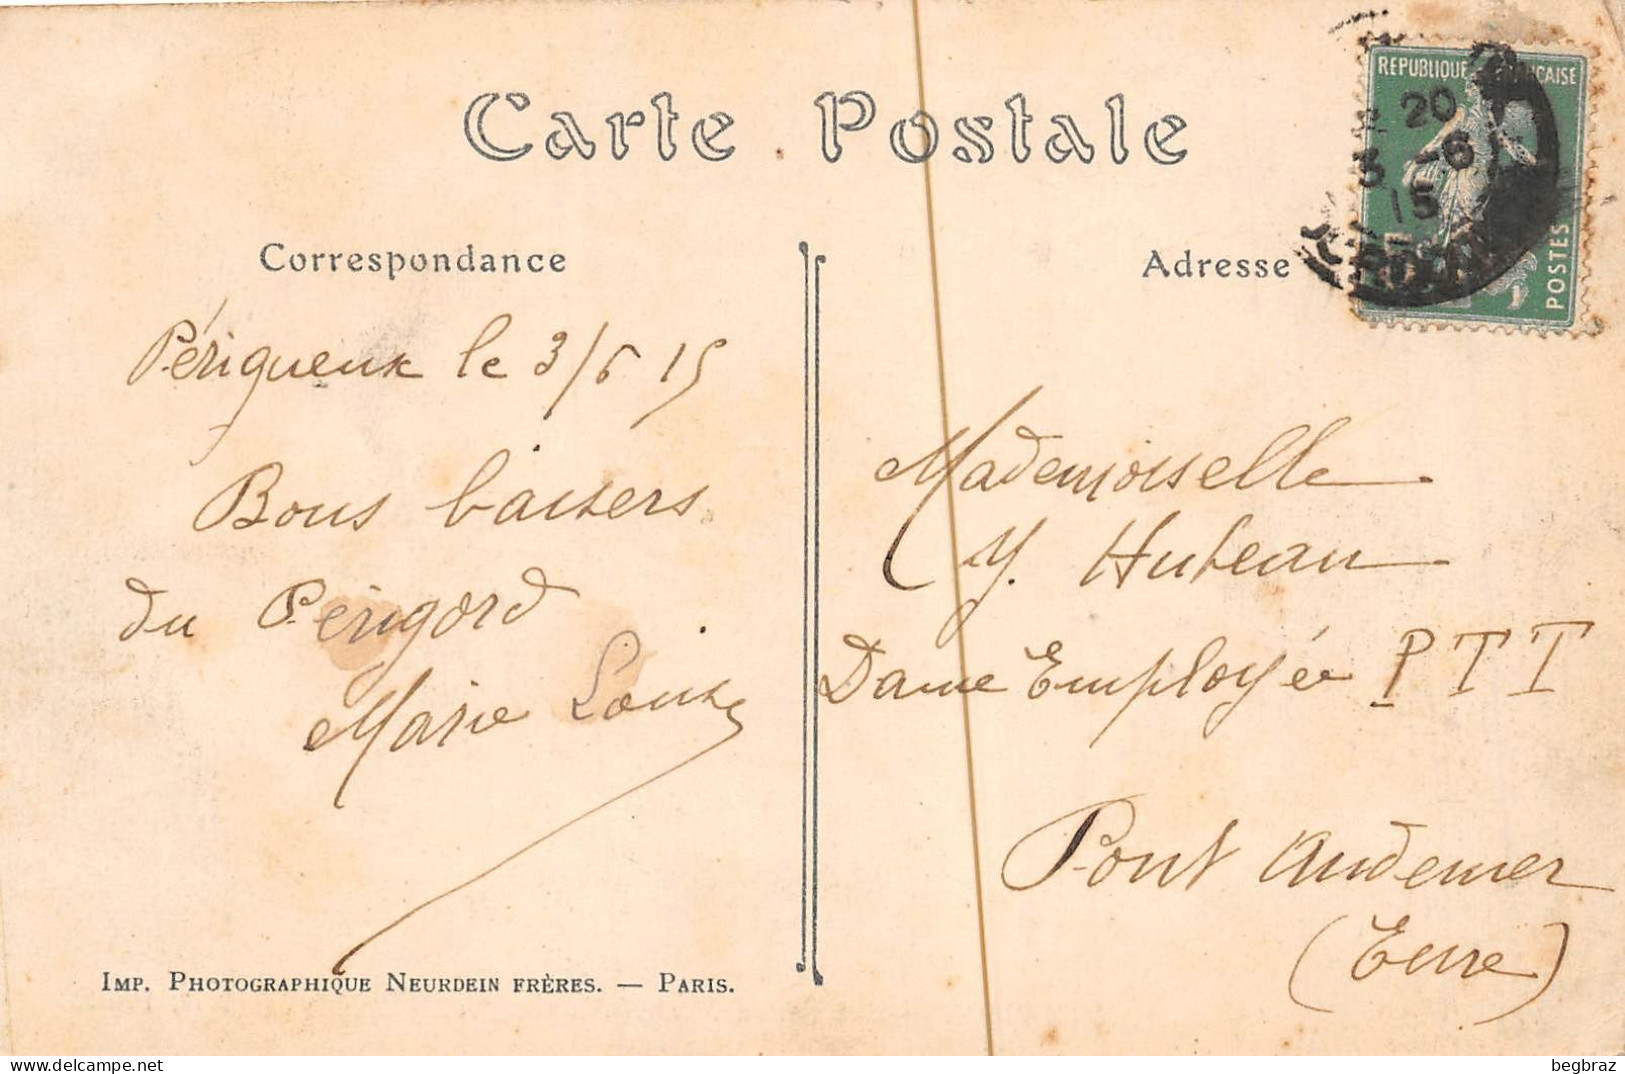 Carte Postale
Correspondance
Périgueux le 3/6 15
Bons baisers
du Périgord
Marie Louise
IMP. PHOTOGRAPHIQUE NEURDEIN FRÈRES. — PARIS.
Adresse
REPUBLIQUE FRANCAISE
POSTES
20
3 -6
15
Mademoiselle
Y. Huteau
Dame Employée PTT
Pont Audemer
(Eure)
begbraz